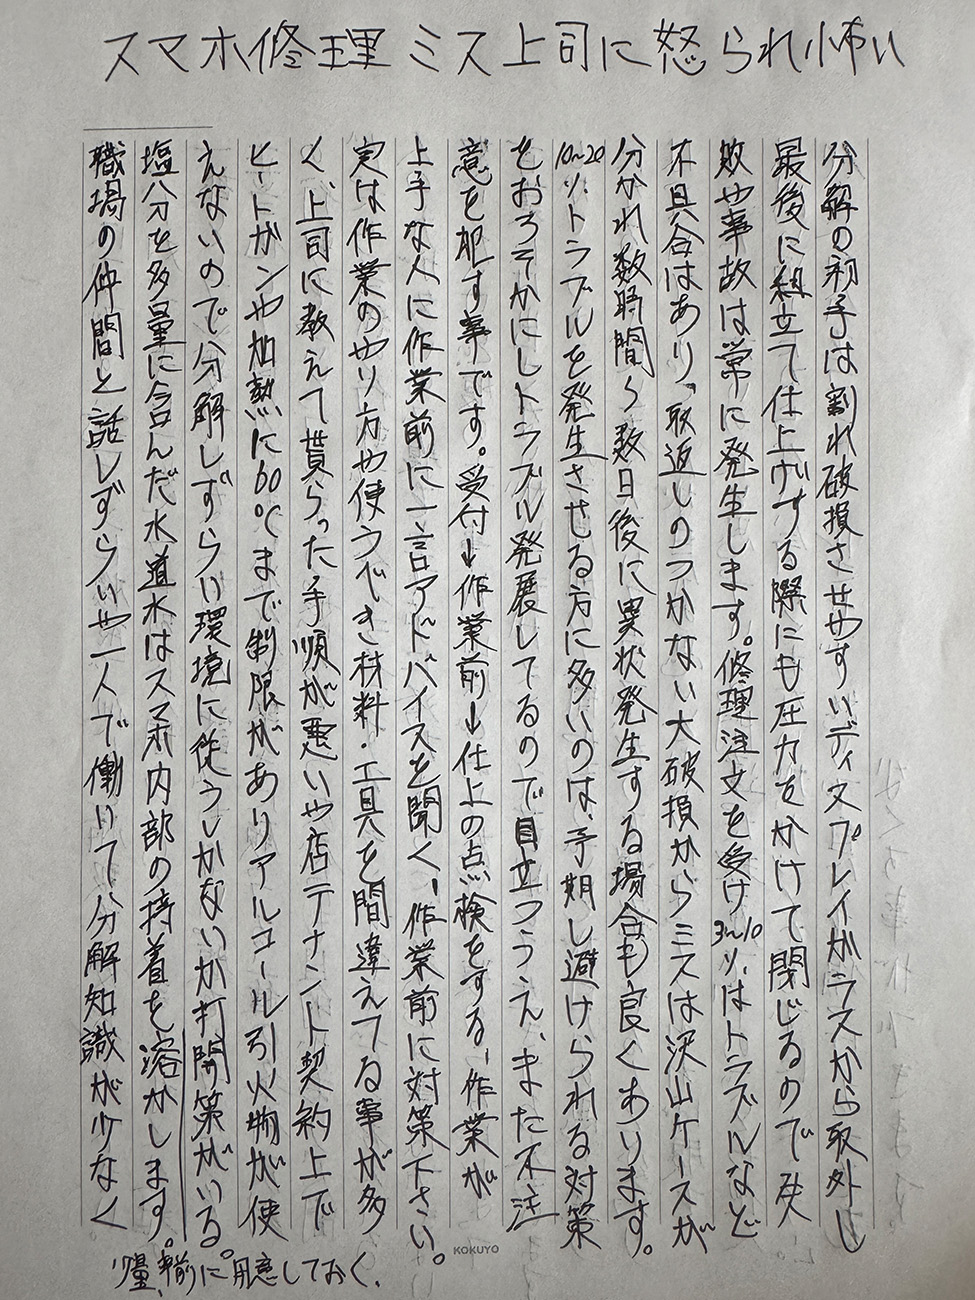 スマホ修理 ミス上司に怒られ怖い
分解の初手は割れ破損させやすいディスプレイガラスから取外し
最後に組立て仕上げする際にも圧力をかけて閉じるので失
敗や事故は常に発生します。修理注文を受け3〜10%はトラブルなど
不具合はあり、取返しのつかない大破損からミスは沢山ケースが
分かれ数時間〜数日後に異状発生する場合も良くあります。
10〜20%トラブルを発生させる方に多いのは、予期し避けられる対策
をおろそかにしトラブル発展してるので目立つうえ、また不注
意を犯す事です。受付→作業前→仕上の点検をする、作業が
上手な人に作業前に一言アドバイスを聞く、作業前に対策下さい。
実は作業のやり方や使うべき材料・工具を間違えてる事が多
く、上司に教えて貰らった手順が悪いや店テナント契約上で
ヒートガンや加熱に60℃まで制限がありアルコール引火物が使
えないので分解しずらい環境に従うしかないが打開策がいる。
塩分を多量に含んだ水道水はスマホ内部の接着を溶かします。
職場の仲間と話しずらいや一人で働いて分解知識が少なく
少量、事前に用意しておく、
KOKUYO